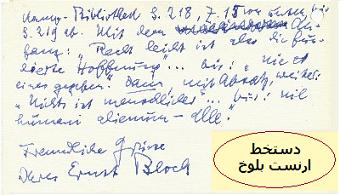 Bibliothek S. 218, Z. 15 von unten, bis
S. 219 ob. Mit dem
"Recht leicht ist also die fun-
dierte Hoffnung" ... bis: nicht
eingegeben. Dann, mit Absatz, weiter:
"Nichts ist menschlicher ... bis: nil
humani alienum - alle.
Freundliche Grüsse
Ihres Ernst Bloch
دستخط
ارنست بلوخ